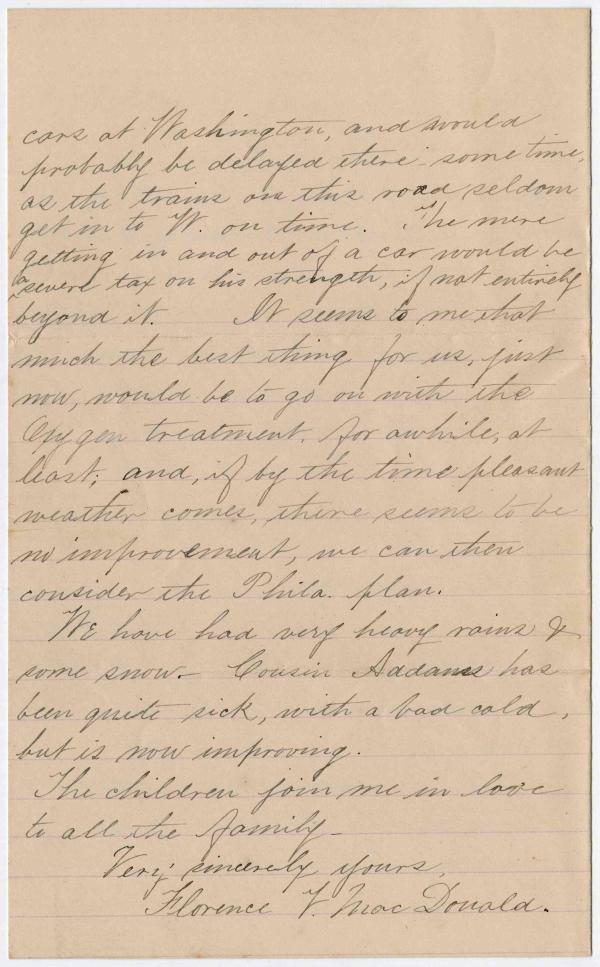 cars at Washington, and would
probably be delayed there some time,
as the trains on this road seldom
get in to W. on time. The mere
getting in and out of a car would be
a severe tax on his strength, if not entirely
beyond it. It seems to me that
much the best thing for us, just
now, would be to go on with the
Oxygen treatment, for awhile, at
least; and, if by the time pleasant
weather comes, there seems to be
no improvement, we can then
consider the Phila. plan.
We have had very heavy rains &
some snow. Cousin Addams has
been quite sick, with a bad cold,
but is now improving.
The children join me in love
to all the family—
Very sincerely yours,
Florence V. MacDonald.